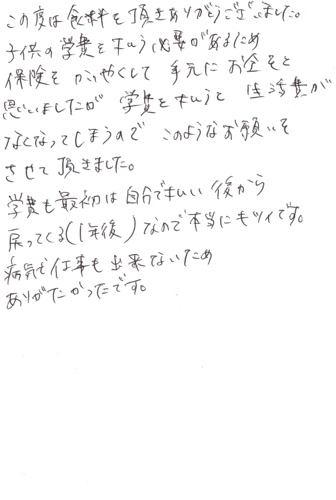 この度は食料を頂きありがとうございました。
子供の学費を払う必要があるため
保険をかいやくして手元にお金をと
思いましたが 学費を払うと 生活費が
なくなってしまうので このようなお願いを
させて頂きました。
学費も最初は自分で払い 後から
戻ってくる(1年後)なので本当にキツイです。
病気で仕事も出来ないため
ありがたかったです。